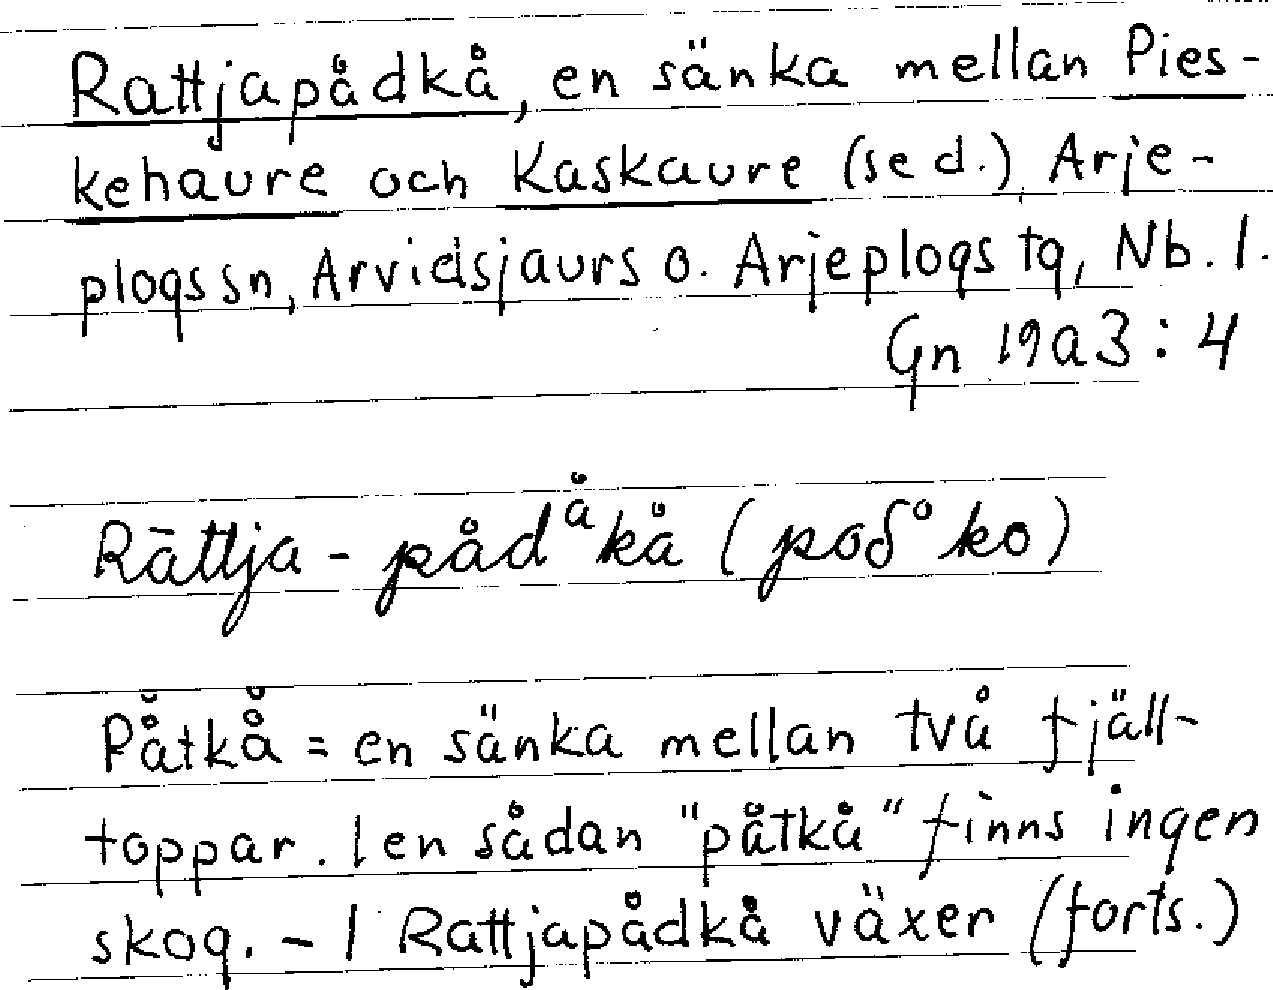 Rattjapådkå, en sänka mellan Pies-
kehaure och Kaskaure (se d.), Arje-
plogs sn, Arvidsjaurs o. Arjeplogs tg, Nb. l.
Gn 19a3:4
Rāttja - pådåkå (poδ°ko)
Påtkå = en sänka mellan två fjäll-
toppar. I en sådan "påtkå" finns ingen
skog. - I Rattjapådkå växer (forts.)